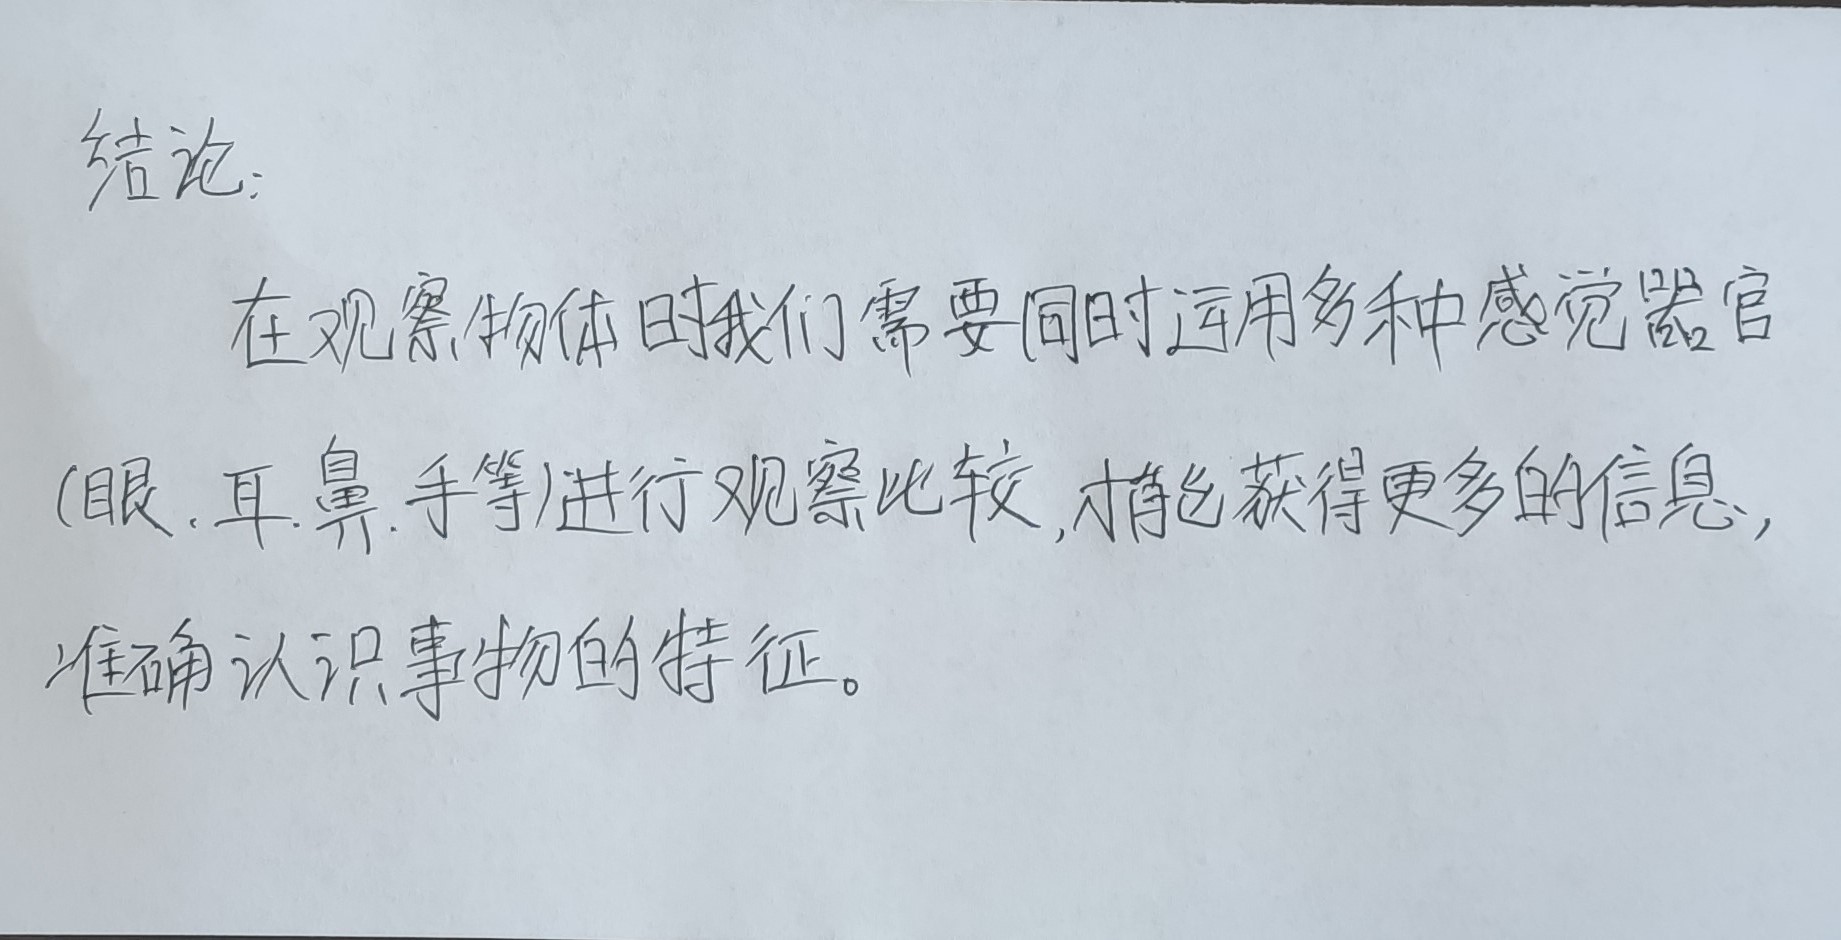 结论:
在观察物体时我们需要同时运用多种感觉器官
(眼、耳、鼻、手等)进行观察比较,才能获得更多的信息,
准确认识事物的特征。